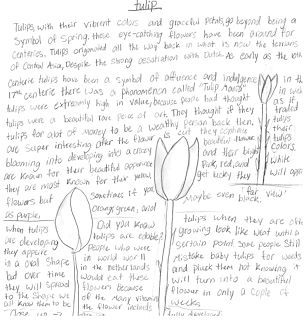 tulip
Tulips, with their vibrant colors and graceful petals, go beyond being a
symbol of spring. these eye-catching flowers have been around for
centeries. Tulips originated all the way back in what is now the terrians
of Central Asia. Despite the strong association with Dutch. As early as the 10th
Centerie tulips have been a symbol of affluence and indulgence
17th centerie there was a phenomenon called "Tulip Mania"
tulips were extremly high in value, because people had thought
tulips were a beautiful rare peice of art. They thought if they
tulips for alot of money to be a wealthy persian back then.
are super interesting after the flower is cut they continue
blooming into developing into a crazy
are known for their beautiful apperence
they are most known for their yellow,
flowers but
as purple,
beautiful flowers
and their bright
Pink, red, and
get lucky they
maybe even black.
in the
in which
as it
tulips
their
tulips
colors
while
will appear
far view
sometimes if you
orange, green, and
when tulips
are developing
they appear
in a oval shape
but over time
they will spread
to the shape we
all know them to be
Close up →
Did you know
tulips are edible?
People who were
in world war II
in the netherlands
would eat these
flowers because
of the many vitamins
the flower includes
tulips when they are often
growing look like what until a
sertain point some people still
mistake baby tulips for weeds
and pluck them not knowing it
will turn into a beautiful
flower in only a cople of
weeks.
fully developed